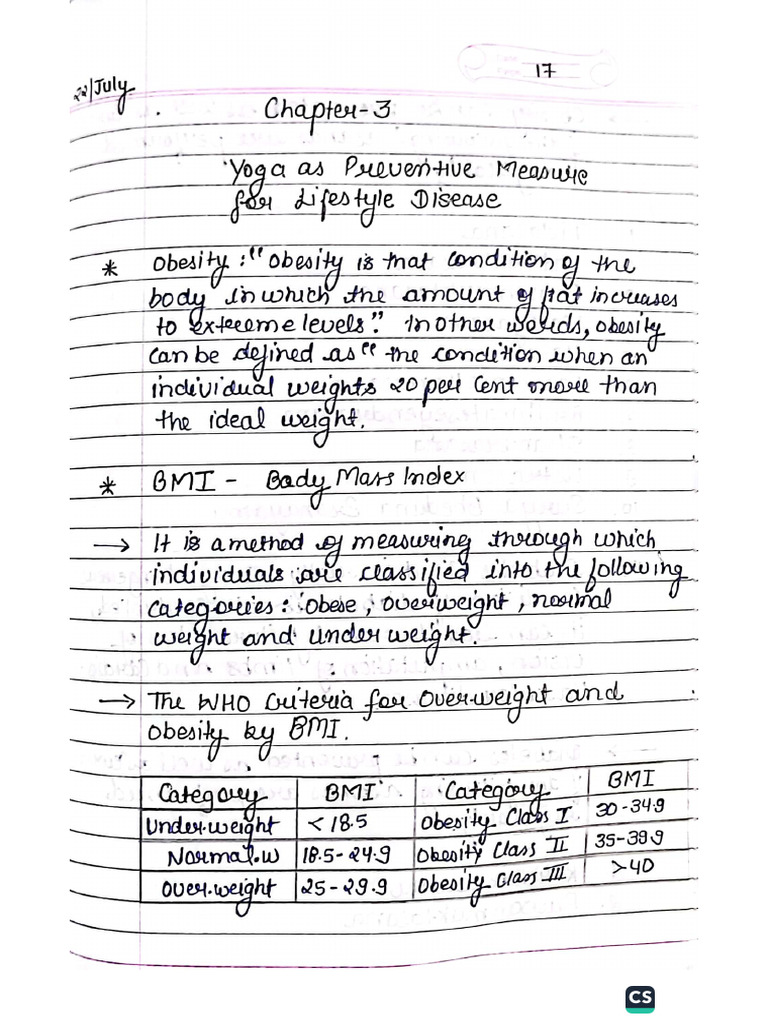 17
22/July
Chapter-3
Yoga as Preventive Measure
for Lifestyle Disease
* Obesity : "Obesity is that condition of the
body in which the amount of fat increases
to extreme levels." In other words, obesity
can be defined as "the condition when an
individual weights 20 per cent more than
the ideal weight.
* BMI - Body Mass Index
→ It is a method of measuring through which
individuals are classified into the following
categories : obese, overweight, normal
weight and under weight.
→ The WHO Criteria for Overweight and
Obesity by BMI.
Category BMI Category BMI
Underweight < 18.5 Obesity Class I 30-34.9
Normal.W 18.5-24.9 Obesity Class II 35-39.9
Overweight 25-29.9 Obesity Class III >40
CS